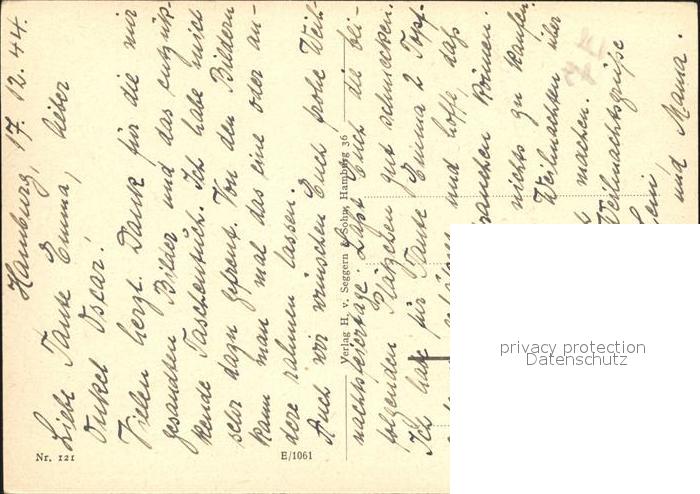 Hamburg, 17. 12. 44.
Liebe Tante Emma, lieber
Onkel Oscar!
Vielen herzl. Dank für die mir
gesandten Bilder und das entzük-
kende Taschentuch. Ich habe mich
sehr dazu gefreut. Von den Bildern
kann man mal das eine oder an-
dere rahmen lassen.
Auch wir wünschen Euch frohe Weih-
nachtsfeiertage. Laßt Euch die bei-
folgenden Plätzchen gut schmecken.
Ich hab für Tante Emma 2 Topf-
und hoffe, daß
brauchen können.
nichts zu kaufen
Weihnachten über
machen.
Weihnachtsgrüße
und Mama.
Verlag H. v. Seggern & Sohn, Hamburg 36
Nr. 121
E/1061
privacy protection
Datenschutz